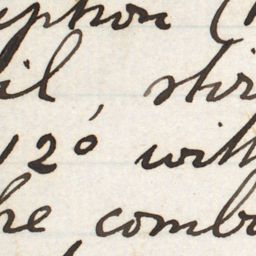 ption (
il, stir
12° with
he comb